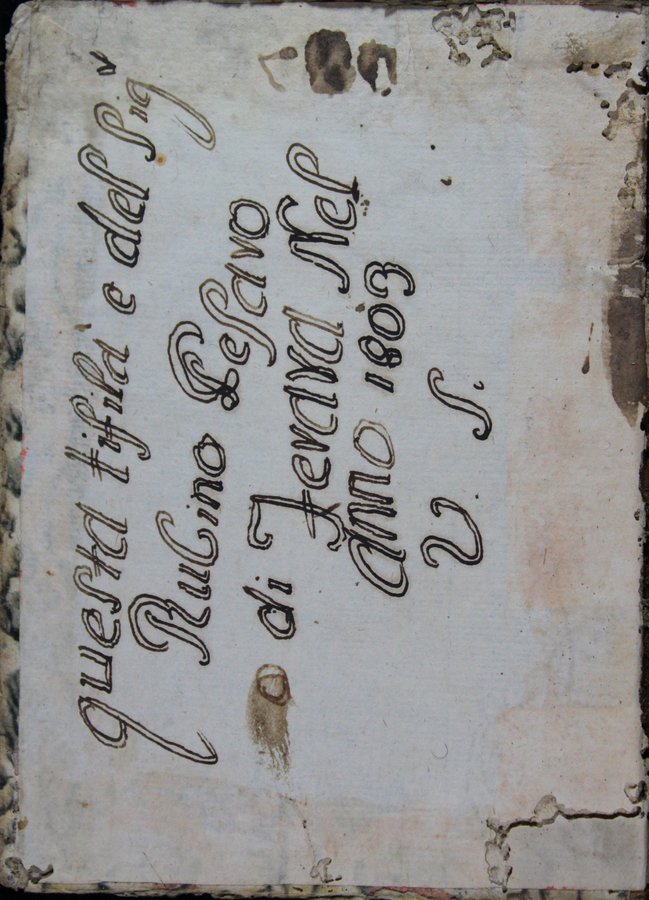 questa tifila e del Sig^v
Rubino Pesavo
di Ferara Nel
anno 1803
V S.